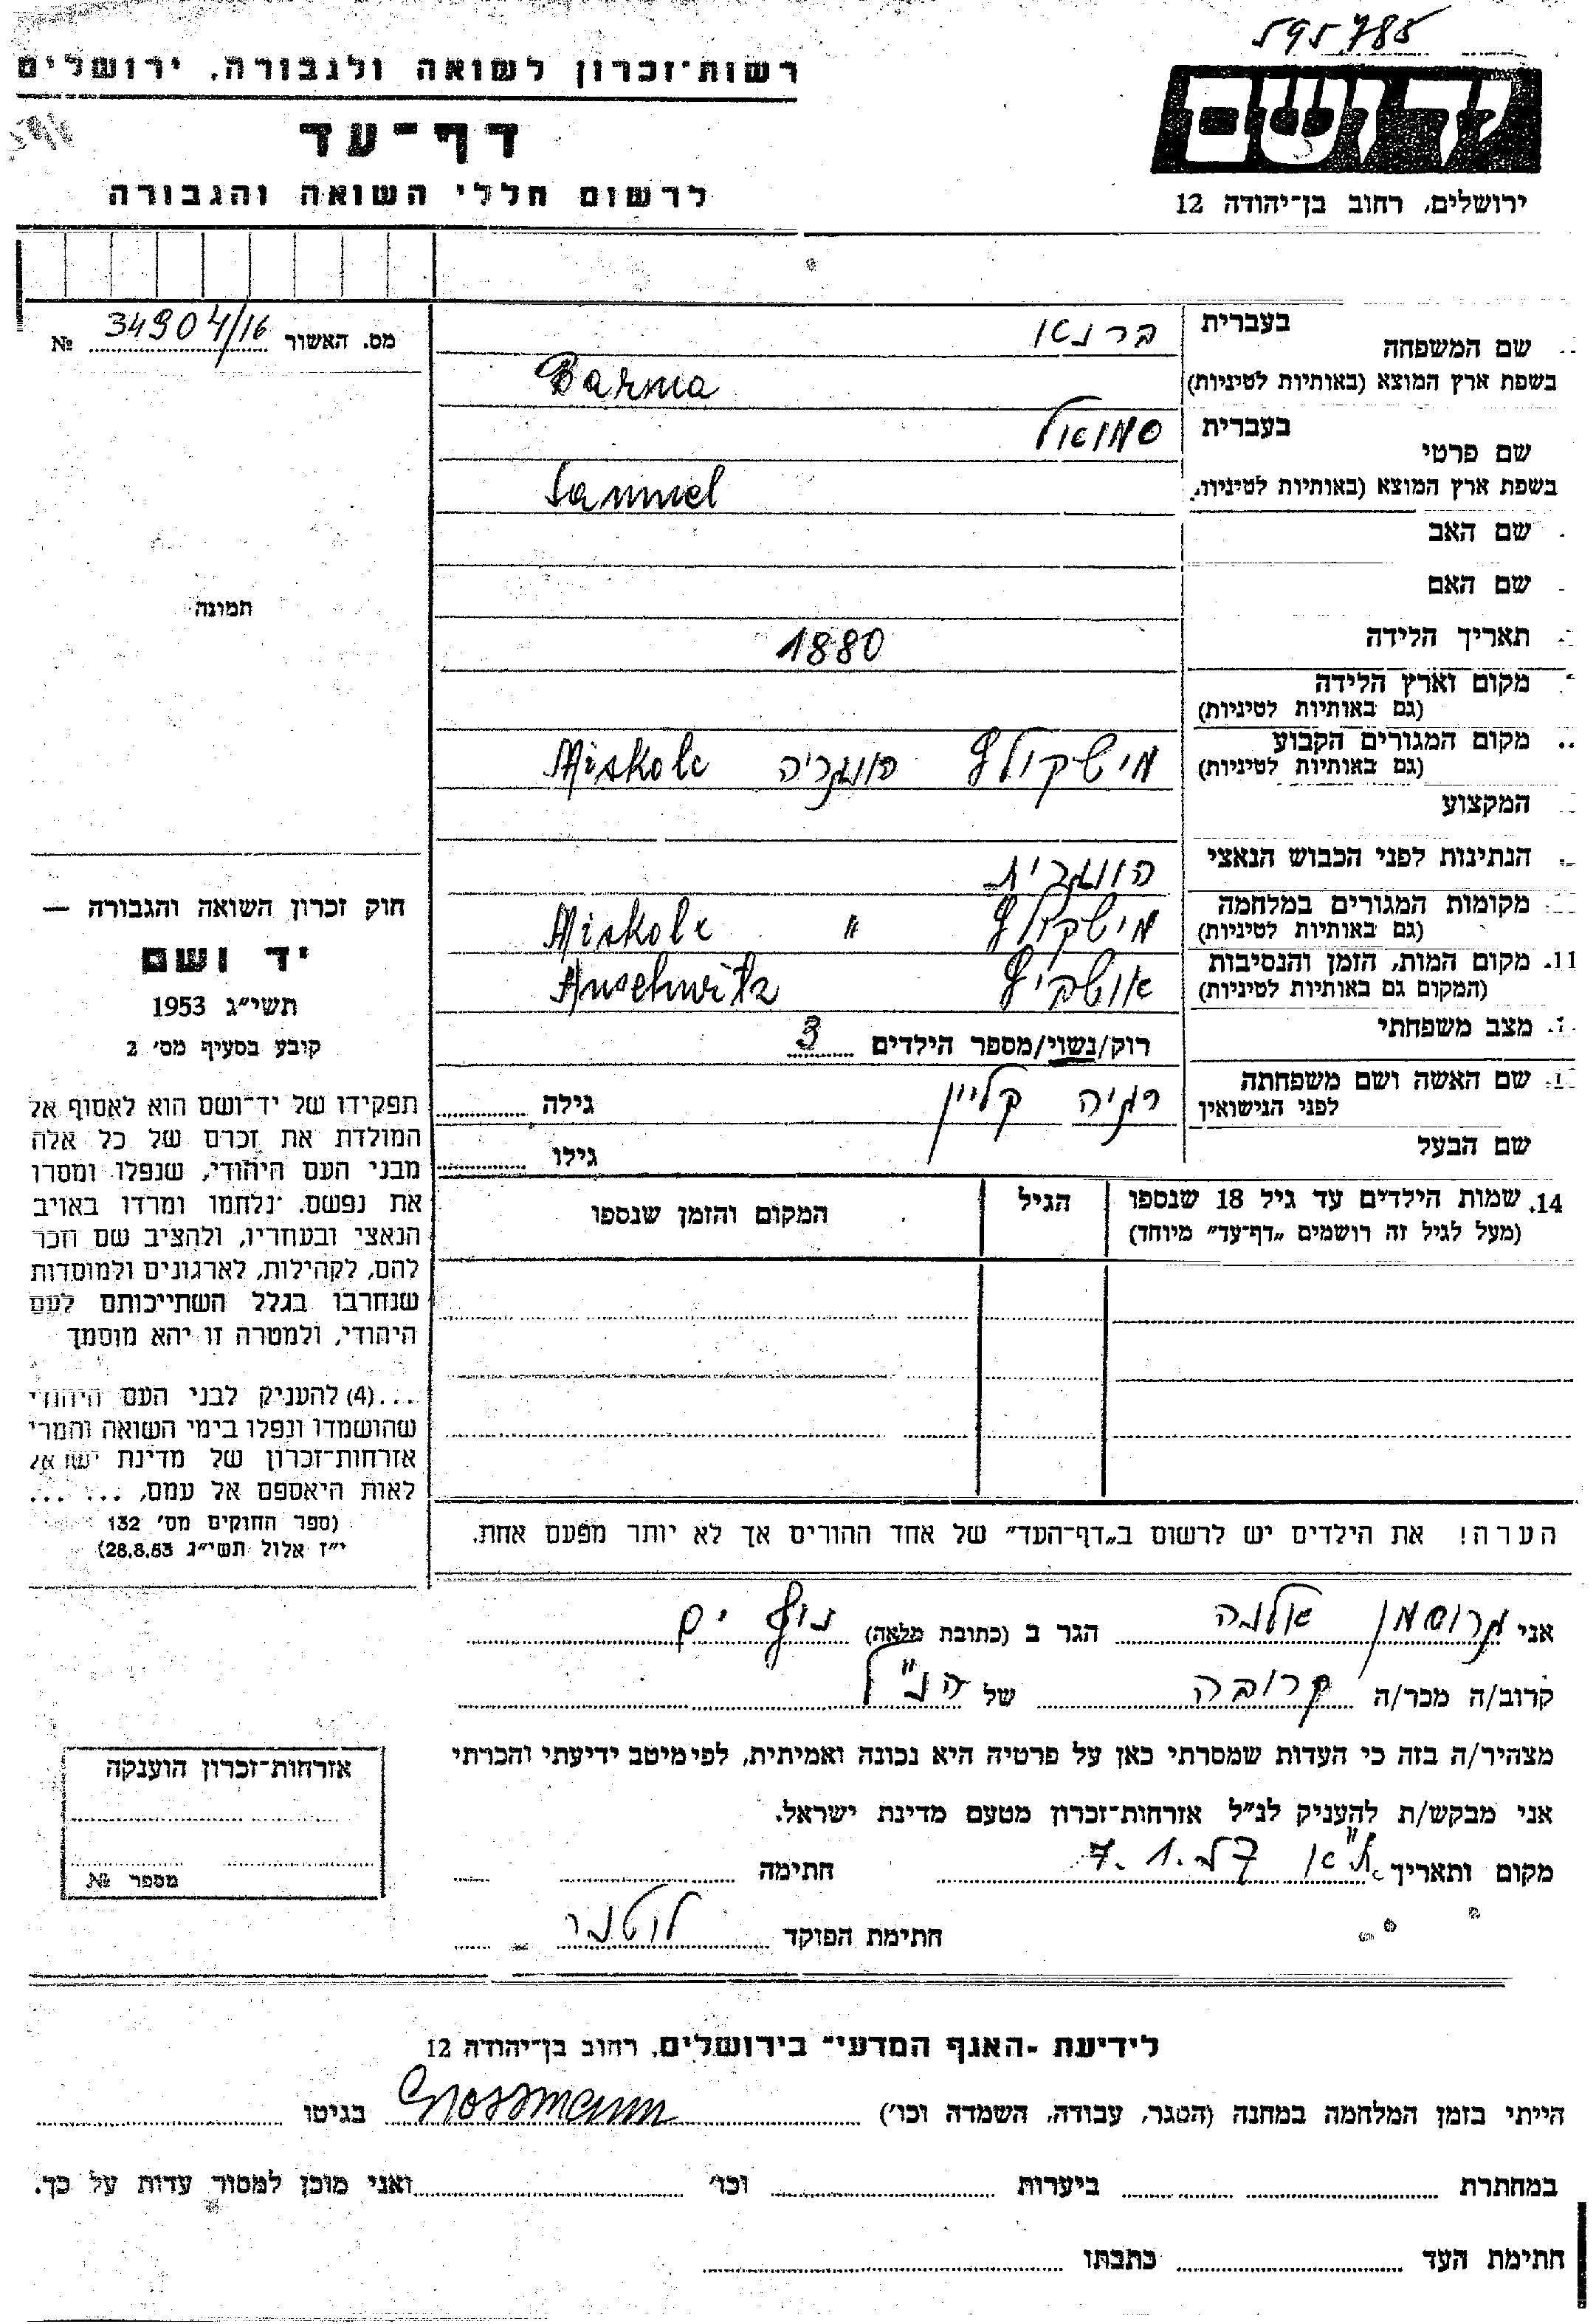 595788
רשות־זכרון לשואה ולגבורה, ירושלים
דף־עד
לרשום חללי השואה והגבורה
יד ושם
ירושלים, רחוב בן־יהודה 12
מס. האשור 34904/16 №
שם המשפחה בעברית ברנא
בשפת ארץ המוצא (באותיות לטיניות) Barna
שם פרטי בעברית סמואל
בשפת ארץ המוצא (באותיות לטיניות) Samuel
שם האב
שם האם
תמונה
תאריך הלידה 1880
מקום וארץ הלידה
(גם באותיות לטיניות)
מקום המגורים הקבוע מישקולץ הונגריה Miskolc
(גם באותיות לטיניות)
המקצוע
הנתינות לפני הכבוש הנאצי הונגרית
מקומות המגורים במלחמה מישקולץ " Miskolc
(גם באותיות לטיניות)
11. מקום המות, הזמן והנסיבות אושביץ Auschwitz
(המקום גם באותיות לטיניות)
מצב משפחתי רוק/נשוי/מספר הילדים 3
שם האשה ושם משפחתה רגיה קליין גילה
לפני הנישואין
שם הבעל גילו
14. שמות הילדים עד גיל 18 שנספו הגיל המקום והזמן שנספו
(מעל לגיל זה רושמים „דף־עד" מיוחד)
חוק זכרון השואה והגבורה —
יד ושם
תשי"ג 1953
קובע בסעיף מס' 2
תפקידו של יד־ושם הוא לאסוף אל
המולדת את זכרם של כל אלה
מבני העם היהודי, שנפלו ומסרו
את נפשם, נלחמו ומרדו באויב
הנאצי ובעוזריו, ולהציב שם וזכר
להם, לקהילות, לארגונים ולמוסדות
שנחרבו בגלל השתייכותם לעם
היהודי, ולמטרה זו יהא מוסמך
...(4) להעניק לבני העם היהודי
שהושמדו ונפלו בימי השואה והמרי
אזרחות־זכרון של מדינת ישראל
לאות היאספם אל עמם, ... ...
(ספר החוקים מס' 132
י"ז אלול תשי"ג 28.8.53)
הערה! את הילדים יש לרשום ב„דף־העד" של אחד ההורים אך לא יותר מפעם אחת.
אני גרוסמן אלנה הגר ב (כתובת מלאה) נוף ים
קרוב/ה מכר/ה קרובה של הנ"ל
מצהיר/ה בזה כי העדות שמסרתי כאן על פרטיה היא נכונה ואמיתית, לפי מיטב ידיעתי והכרתי
אני מבקש/ת להעניק לנ"ל אזרחות־זכרון מטעם מדינת ישראל.
מקום ותאריך 7.1. חתימה
חתימת הפוקד לוטנר
אזרחות־זכרון הוענקה
מספר №
לידיעת „האגף המדעי" בירושלים, רחוב בן־יהודה 12
הייתי בזמן המלחמה במחנה (הסגר, עבודה, השמדה וכו') Grossmann בגיטו
במחתרת ביערות וכו' ואני מוכן למסור עדות על כך.
חתימת העד כתבתו